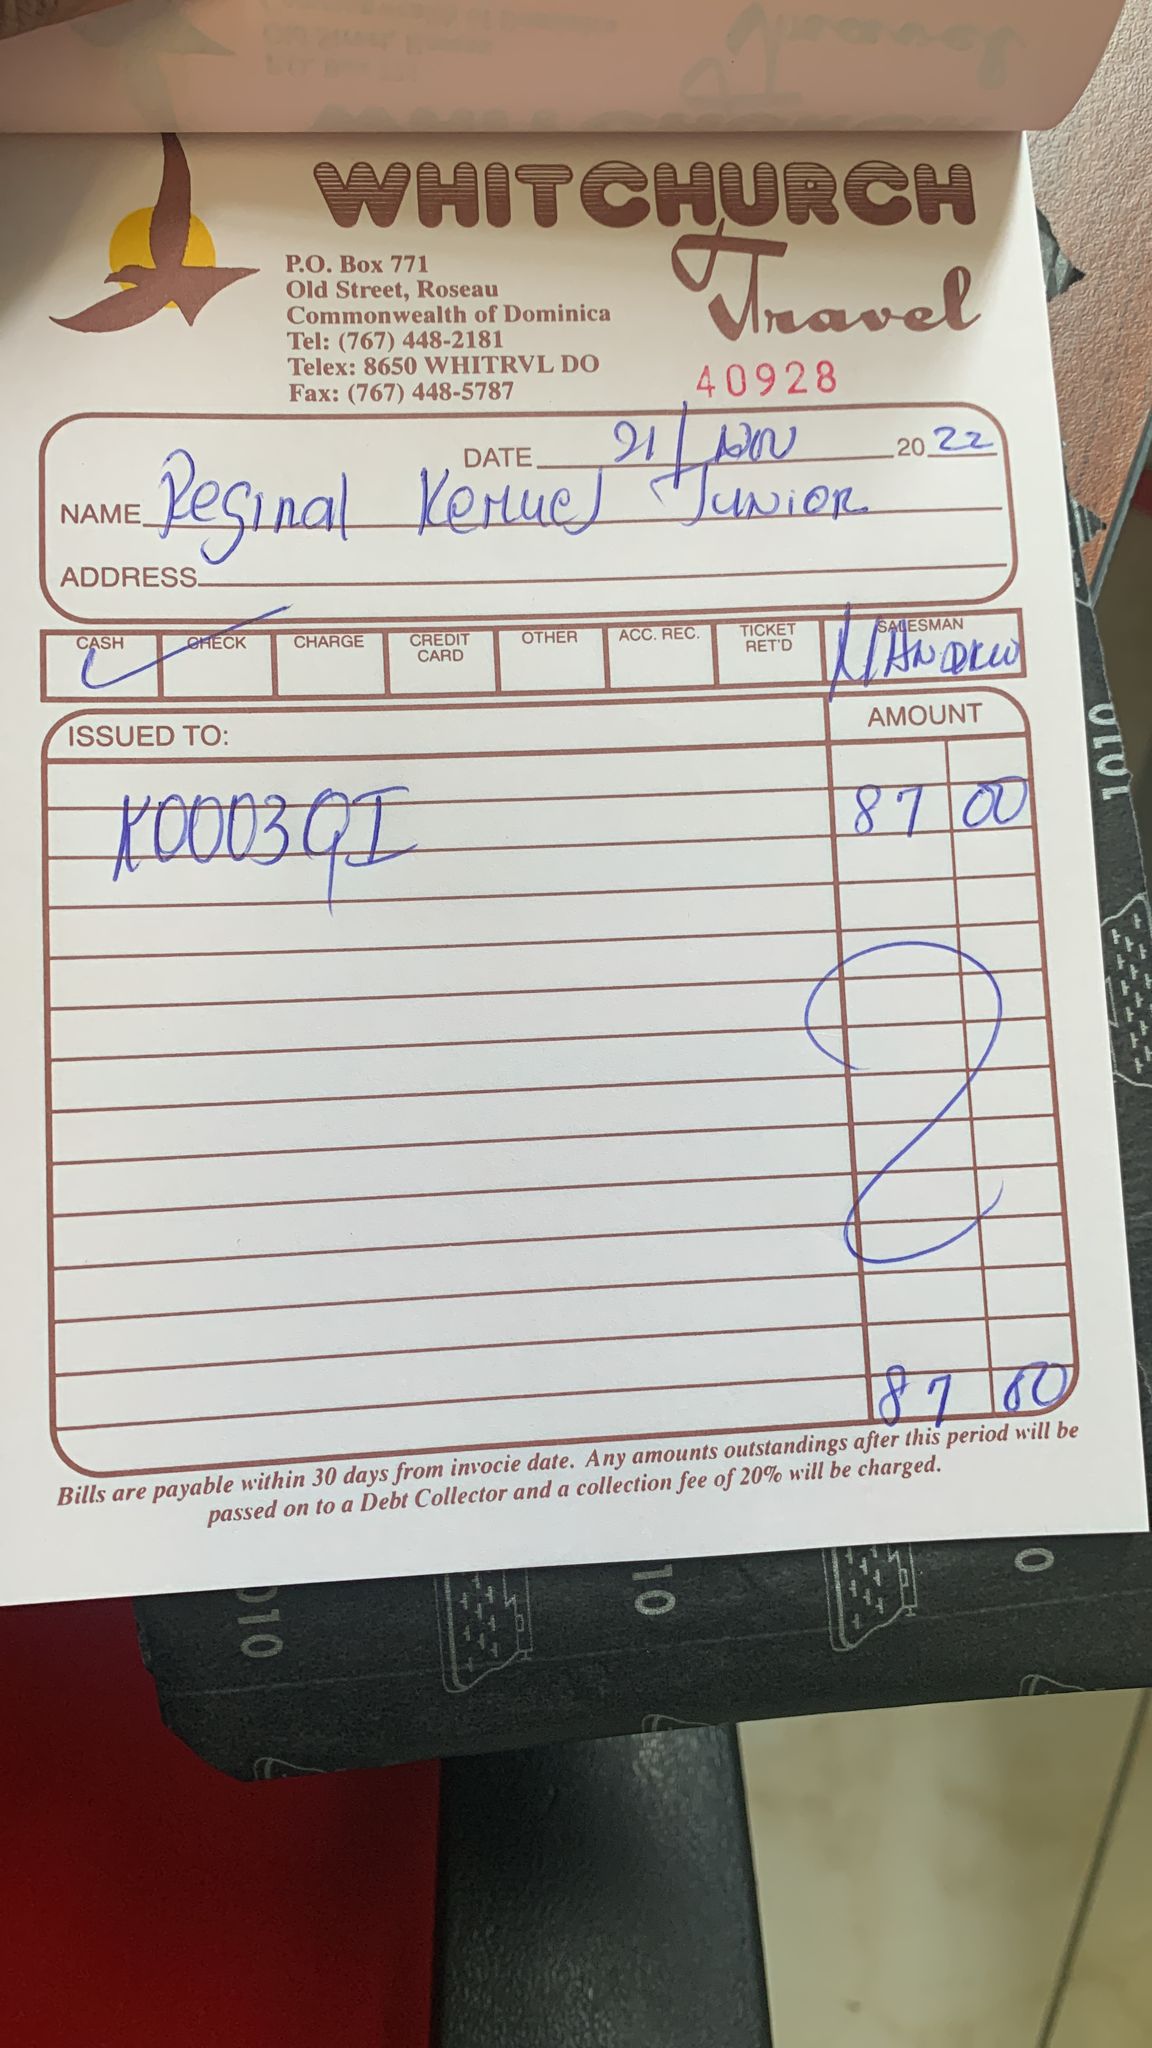 WHITCHURCH
Travel
P.O. Box 771
Old Street, Roseau
Commonwealth of Dominica
Tel: (767) 448-2181
Telex: 8650 WHITRVL DO
Fax: (767) 448-5787
40928
DATE 21/NOV 2022
NAME Reginal Kemuel Junior
ADDRESS
CASH CHECK CHARGE CREDIT CARD OTHER ACC. REC. TICKET RET'D SALESMAN
ISSUED TO: AMOUNT
K0003QI 87 00
87 00
Bills are payable within 30 days from invocie date. Any amounts outstandings after this period will be
passed on to a Debt Collector and a collection fee of 20% will be charged.
1010
010
10
0